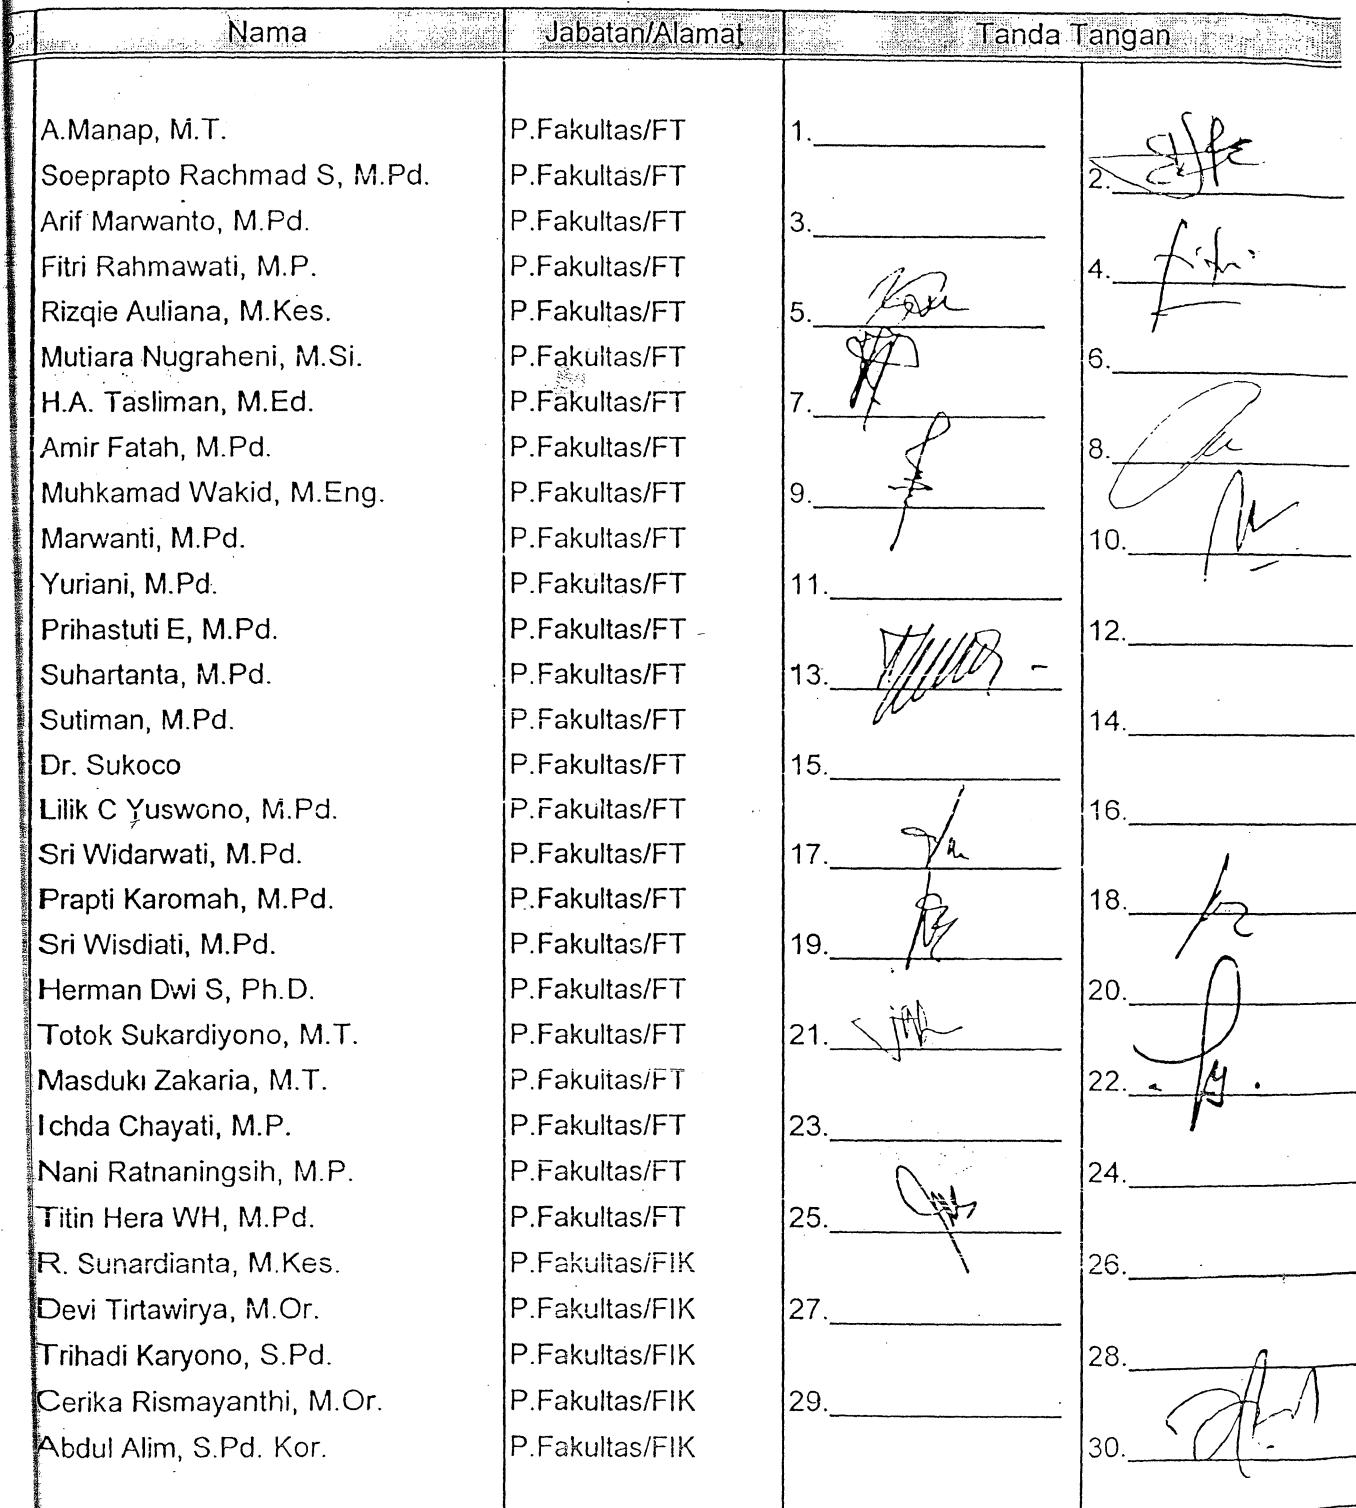 Nama Jabatan/Alamat Tanda Tangan
A.Manap, M.T. P.Fakultas/FT 1.
Soeprapto Rachmad S, M.Pd. P.Fakultas/FT 2.
Arif Marwanto, M.Pd. P.Fakultas/FT 3.
Fitri Rahmawati, M.P. P.Fakultas/FT 4.
Rizqie Auliana, M.Kes. P.Fakultas/FT 5.
Mutiara Nugraheni, M.Si. P.Fakultas/FT 6.
H.A. Tasliman, M.Ed. P.Fakultas/FT 7.
Amir Fatah, M.Pd. P.Fakultas/FT 8.
Muhkamad Wakid, M.Eng. P.Fakultas/FT 9.
Marwanti, M.Pd. P.Fakultas/FT 10.
Yuriani, M.Pd. P.Fakultas/FT 11.
Prihastuti E, M.Pd. P.Fakultas/FT 12.
Suhartanta, M.Pd. P.Fakultas/FT 13.
Sutiman, M.Pd. P.Fakultas/FT 14.
Dr. Sukoco P.Fakultas/FT 15.
Lilik C Yuswono, M.Pd. P.Fakultas/FT 16.
Sri Widarwati, M.Pd. P.Fakultas/FT 17.
Prapti Karomah, M.Pd. P.Fakultas/FT 18.
Sri Wisdiati, M.Pd. P.Fakultas/FT 19.
Herman Dwi S, Ph.D. P.Fakultas/FT 20.
Totok Sukardiyono, M.T. P.Fakultas/FT 21.
Masduki Zakaria, M.T. P.Fakultas/FT 22.
Ichda Chayati, M.P. P.Fakultas/FT 23.
Nani Ratnaningsih, M.P. P.Fakultas/FT 24.
Titin Hera WH, M.Pd. P.Fakultas/FT 25.
R. Sunardianta, M.Kes. P.Fakultas/FIK 26.
Devi Tirtawirya, M.Or. P.Fakultas/FIK 27.
Trihadi Karyono, S.Pd. P.Fakultas/FIK 28.
Cerika Rismayanthi, M.Or. P.Fakultas/FIK 29.
Abdul Alim, S.Pd. Kor. P.Fakultas/FIK 30.